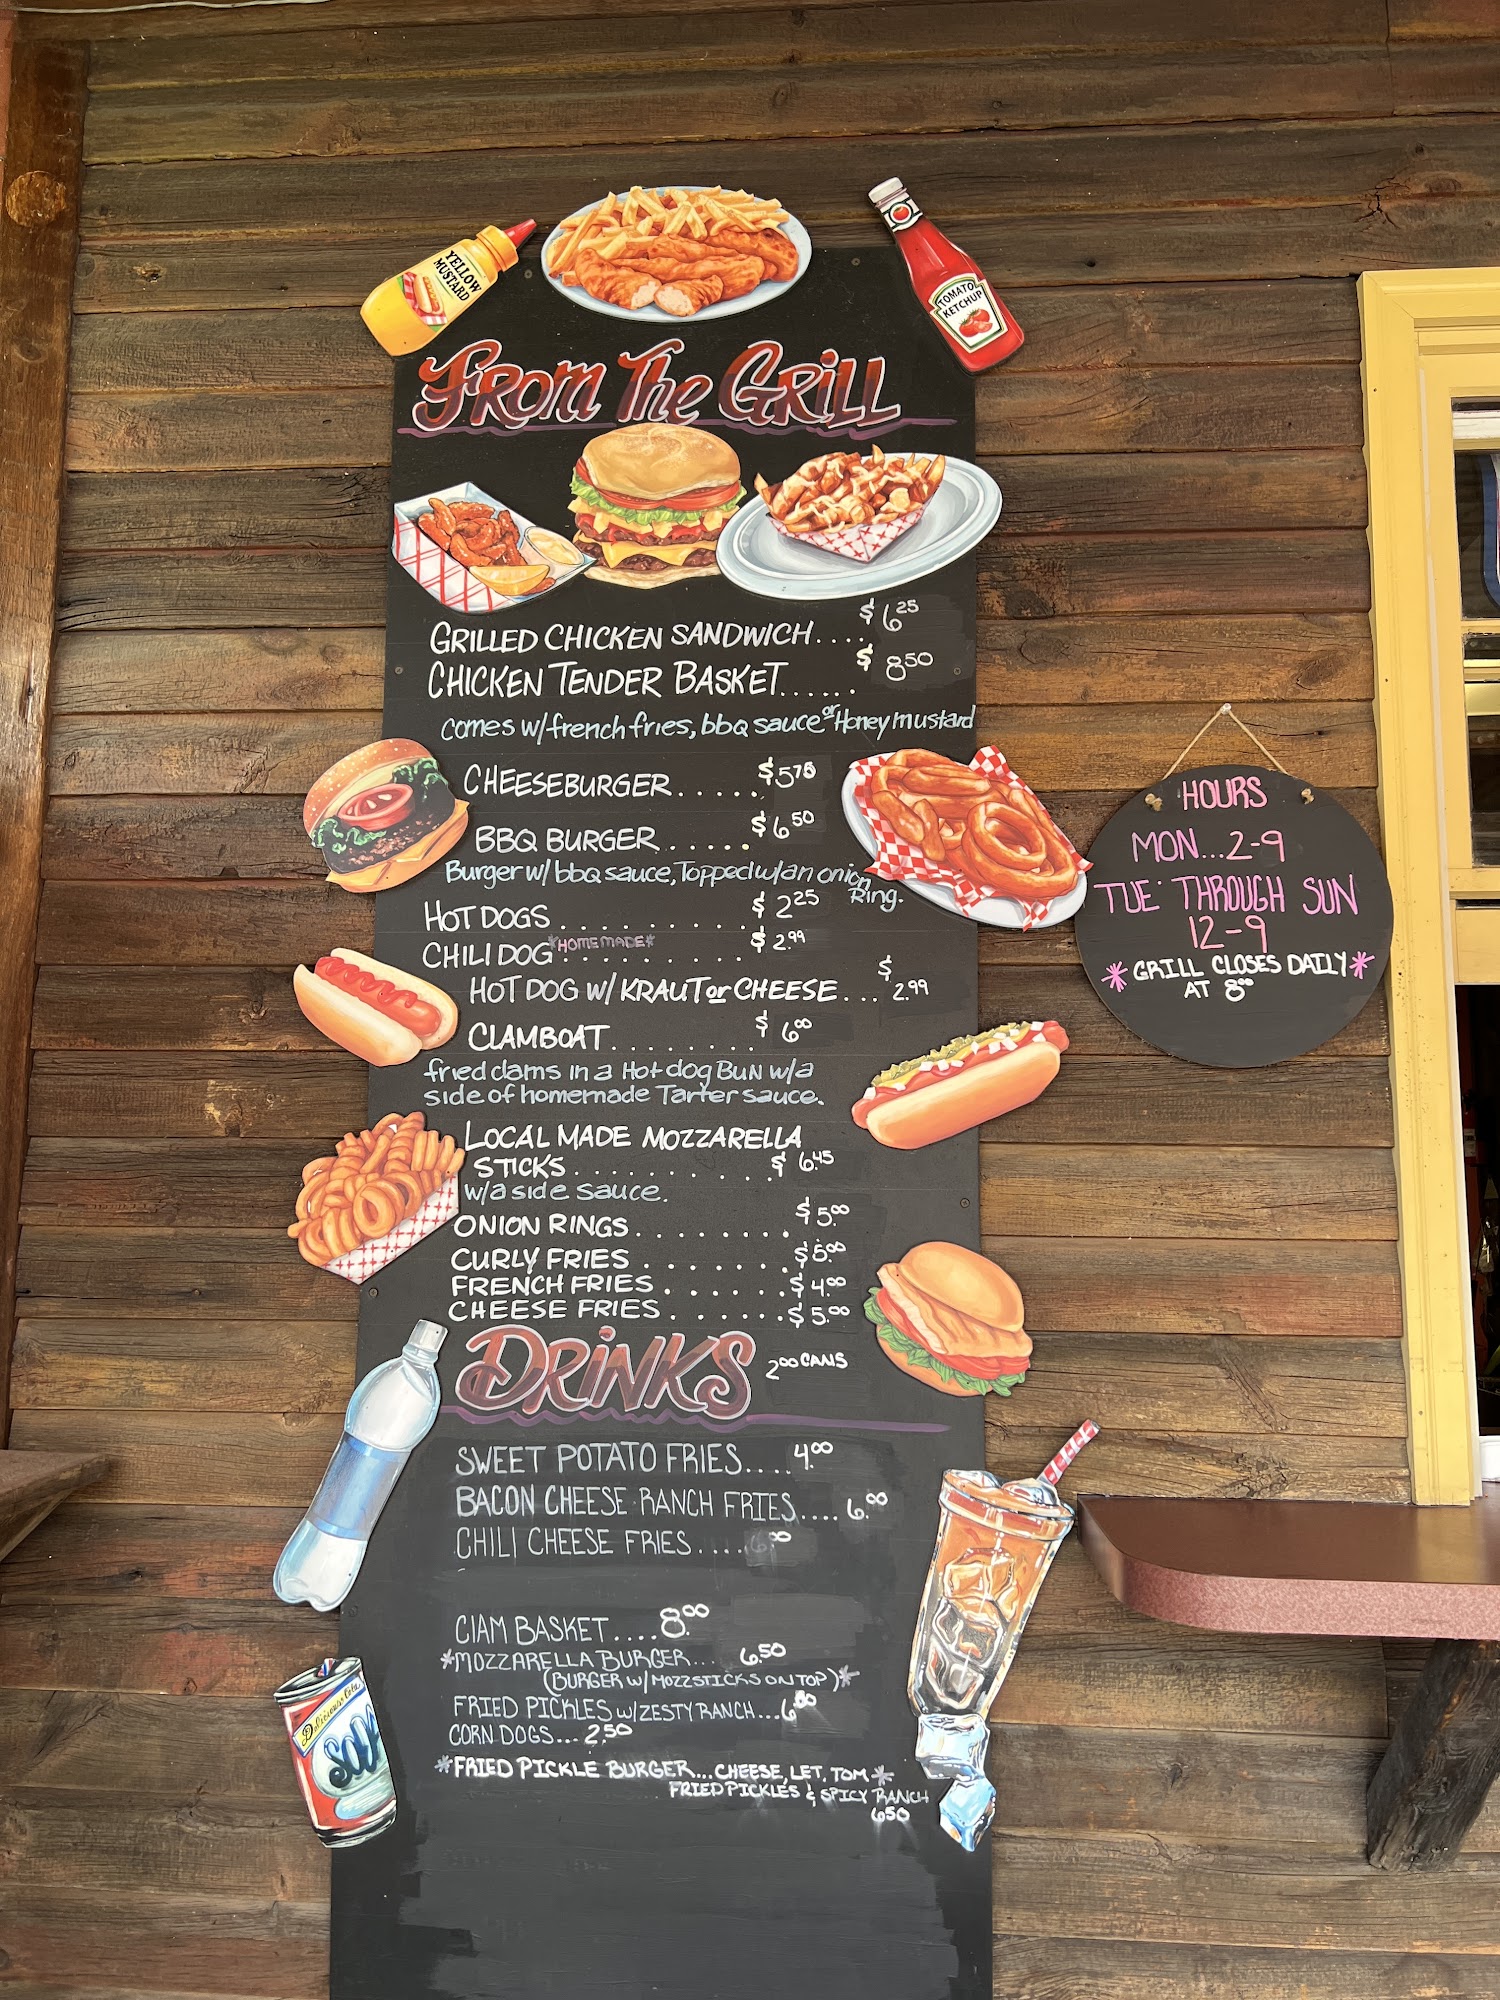 YELLOW
MUSTARD
TOMATO
KETCHUP
FROM THE GRILL
GRILLED CHICKEN SANDWICH.... $6.25
CHICKEN TENDER BASKET...... $8.50
comes w/french fries, bbq sauce or Honey mustard
CHEESEBURGER...... $5.75
BBQ BURGER...... $6.50
Burger w/ bbq sauce, Topped w/an onion
Ring.
HOT DOGS......... $2.25
CHILI DOG *HOMEMADE*......... $2.99
HOT DOG w/ KRAUT or CHEESE... $2.99
CLAMBOAT........ $6.00
fried clams in a Hot dog Bun w/a
side of homemade Tarter sauce.
LOCAL MADE MOZZARELLA
STICKS......... $6.45
w/a side sauce.
ONION RINGS........ $5.00
CURLY FRIES....... $5.00
FRENCH FRIES...... $4.00
CHEESE FRIES...... $5.00
DRINKS 2.00 CANS
SWEET POTATO FRIES.... 4.00
BACON CHEESE RANCH FRIES.... 6.00
CHILI CHEESE FRIES.... 6.00
CLAM BASKET.... 8.00
*MOZZARELLA BURGER... 6.50
(BURGER w/ MOZZSTICKS ON TOP)*
FRIED PICKLES w/ZESTY RANCH...
CORN DOGS... 2.50
*FRIED PICKLE BURGER.... CHEESE, LET, TOM*
FRIED PICKLES & SPICY RANCH
650
Delicious Cola
SODA
HOURS
MON...2-9
TUE THROUGH SUN
12-9
*GRILL CLOSES DAILY*
AT 8:00